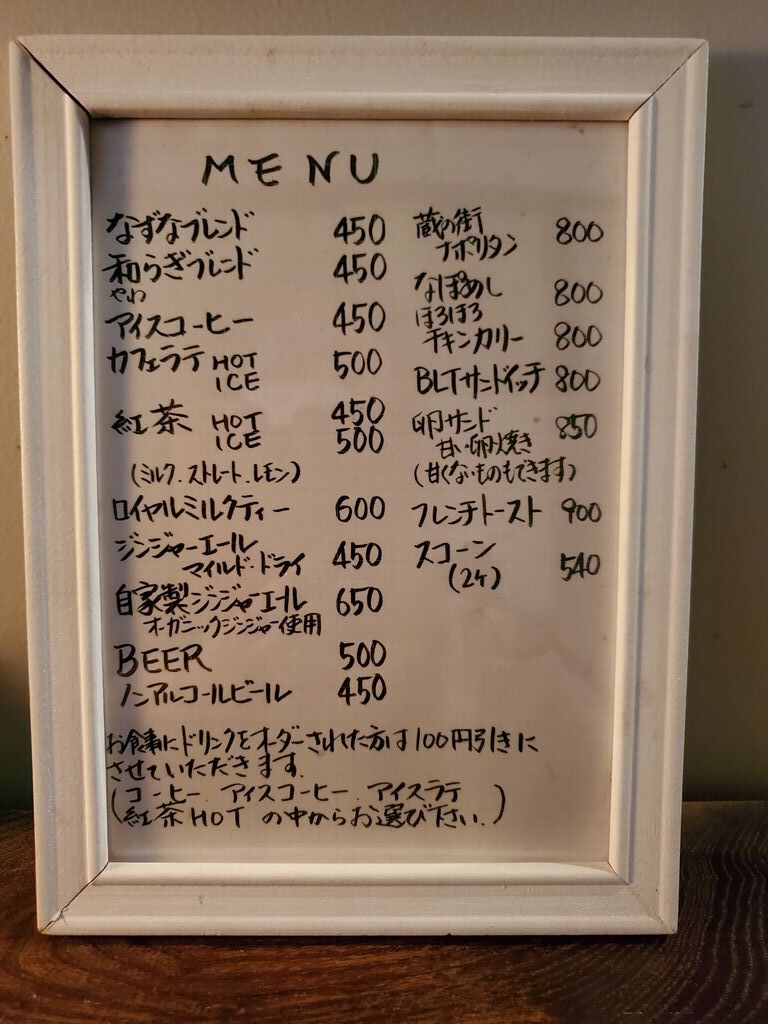 MENU
なずなブレンド 450
和らぎブレンド 450
やわ
アイスコーヒー 450
カフェラテ HOT 500
ICE
紅茶 HOT 450
ICE 500
(ミルク.ストレート.レモン)
ロイヤルミルクティー 600
ジンジャーエール
マイルド・ドライ 450
自家製ジンジャーエール 650
オーガニックジンジャー使用
BEER 500
ノンアルコールビール 450
蔵の街
ナポリタン 800
なぽめし 800
ほろほろ
チキンカリー 800
BLTサンドイッチ 800
卵サンド 850
甘い卵焼き
(甘くないものもできます)
フレンチトースト 900
スコーン
(2ヶ) 540
お食事にドリンクをオーダーされた方は100円引きに
させていただきます.
(コーヒー.アイスコーヒー.アイスラテ
紅茶HOT の中からお選び下さい.)